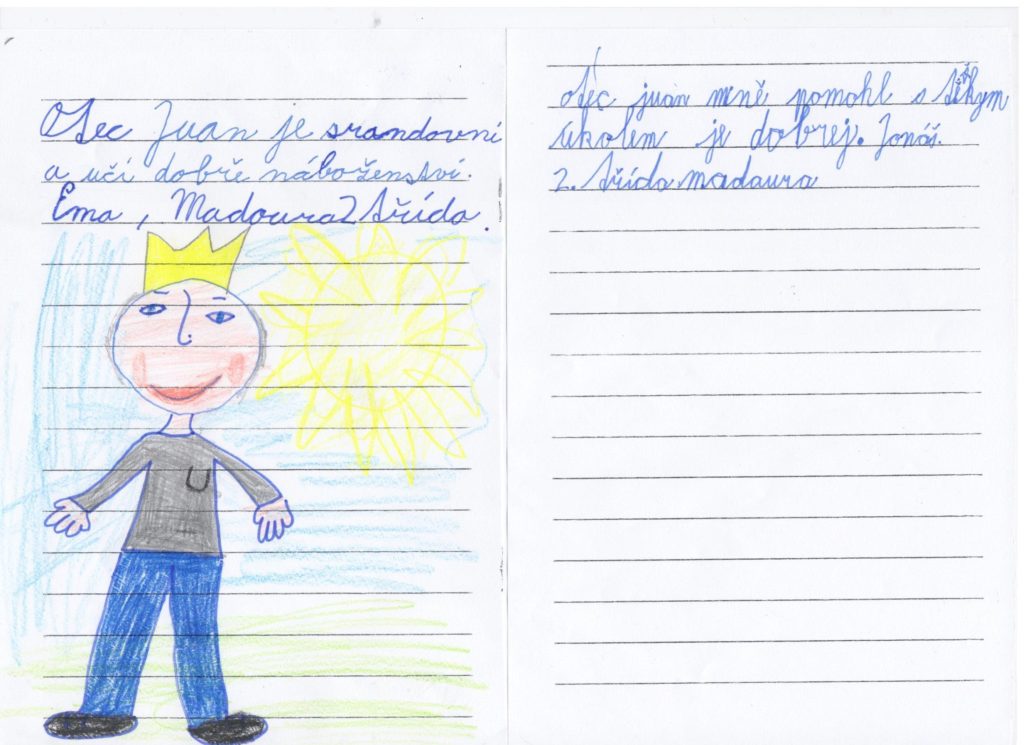 Otec Juan je srandovní
a učí dobře náboženství.
Ema, Madoura 2 třída.
otec juan mně pomohl s těžkym
úkolem je dobrej. Jonáš.
2. třída madaura